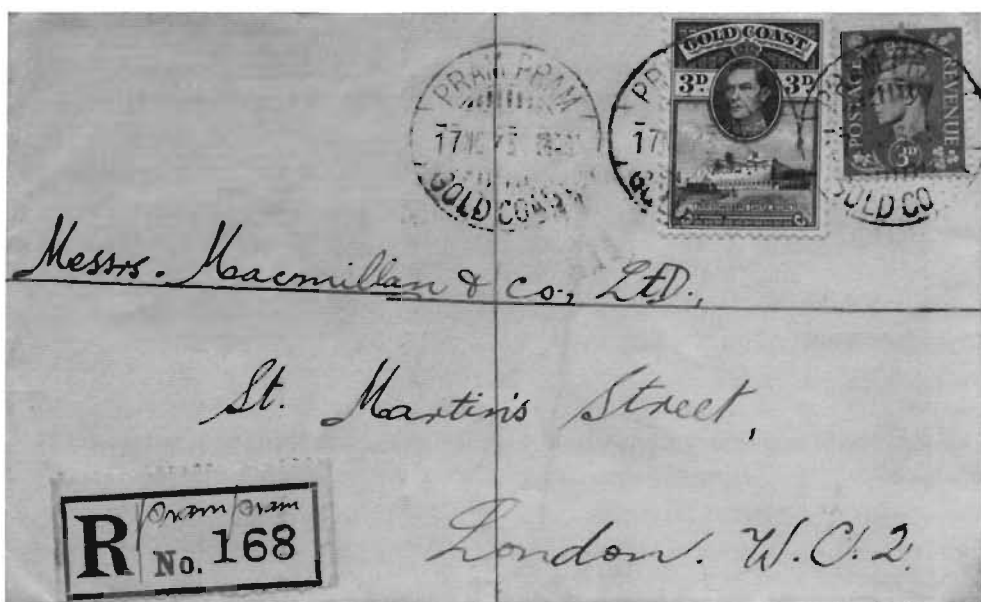 PRAM PRAM
GOLD COAST
GOLD COAST
3D 3D
POSTAGE REVENUE
3D
GOLD CO
Messrs. Macmillan & Co., LTD.,
St. Martin's Street,
London. W.C.2.
R Pram Pram
No. 168